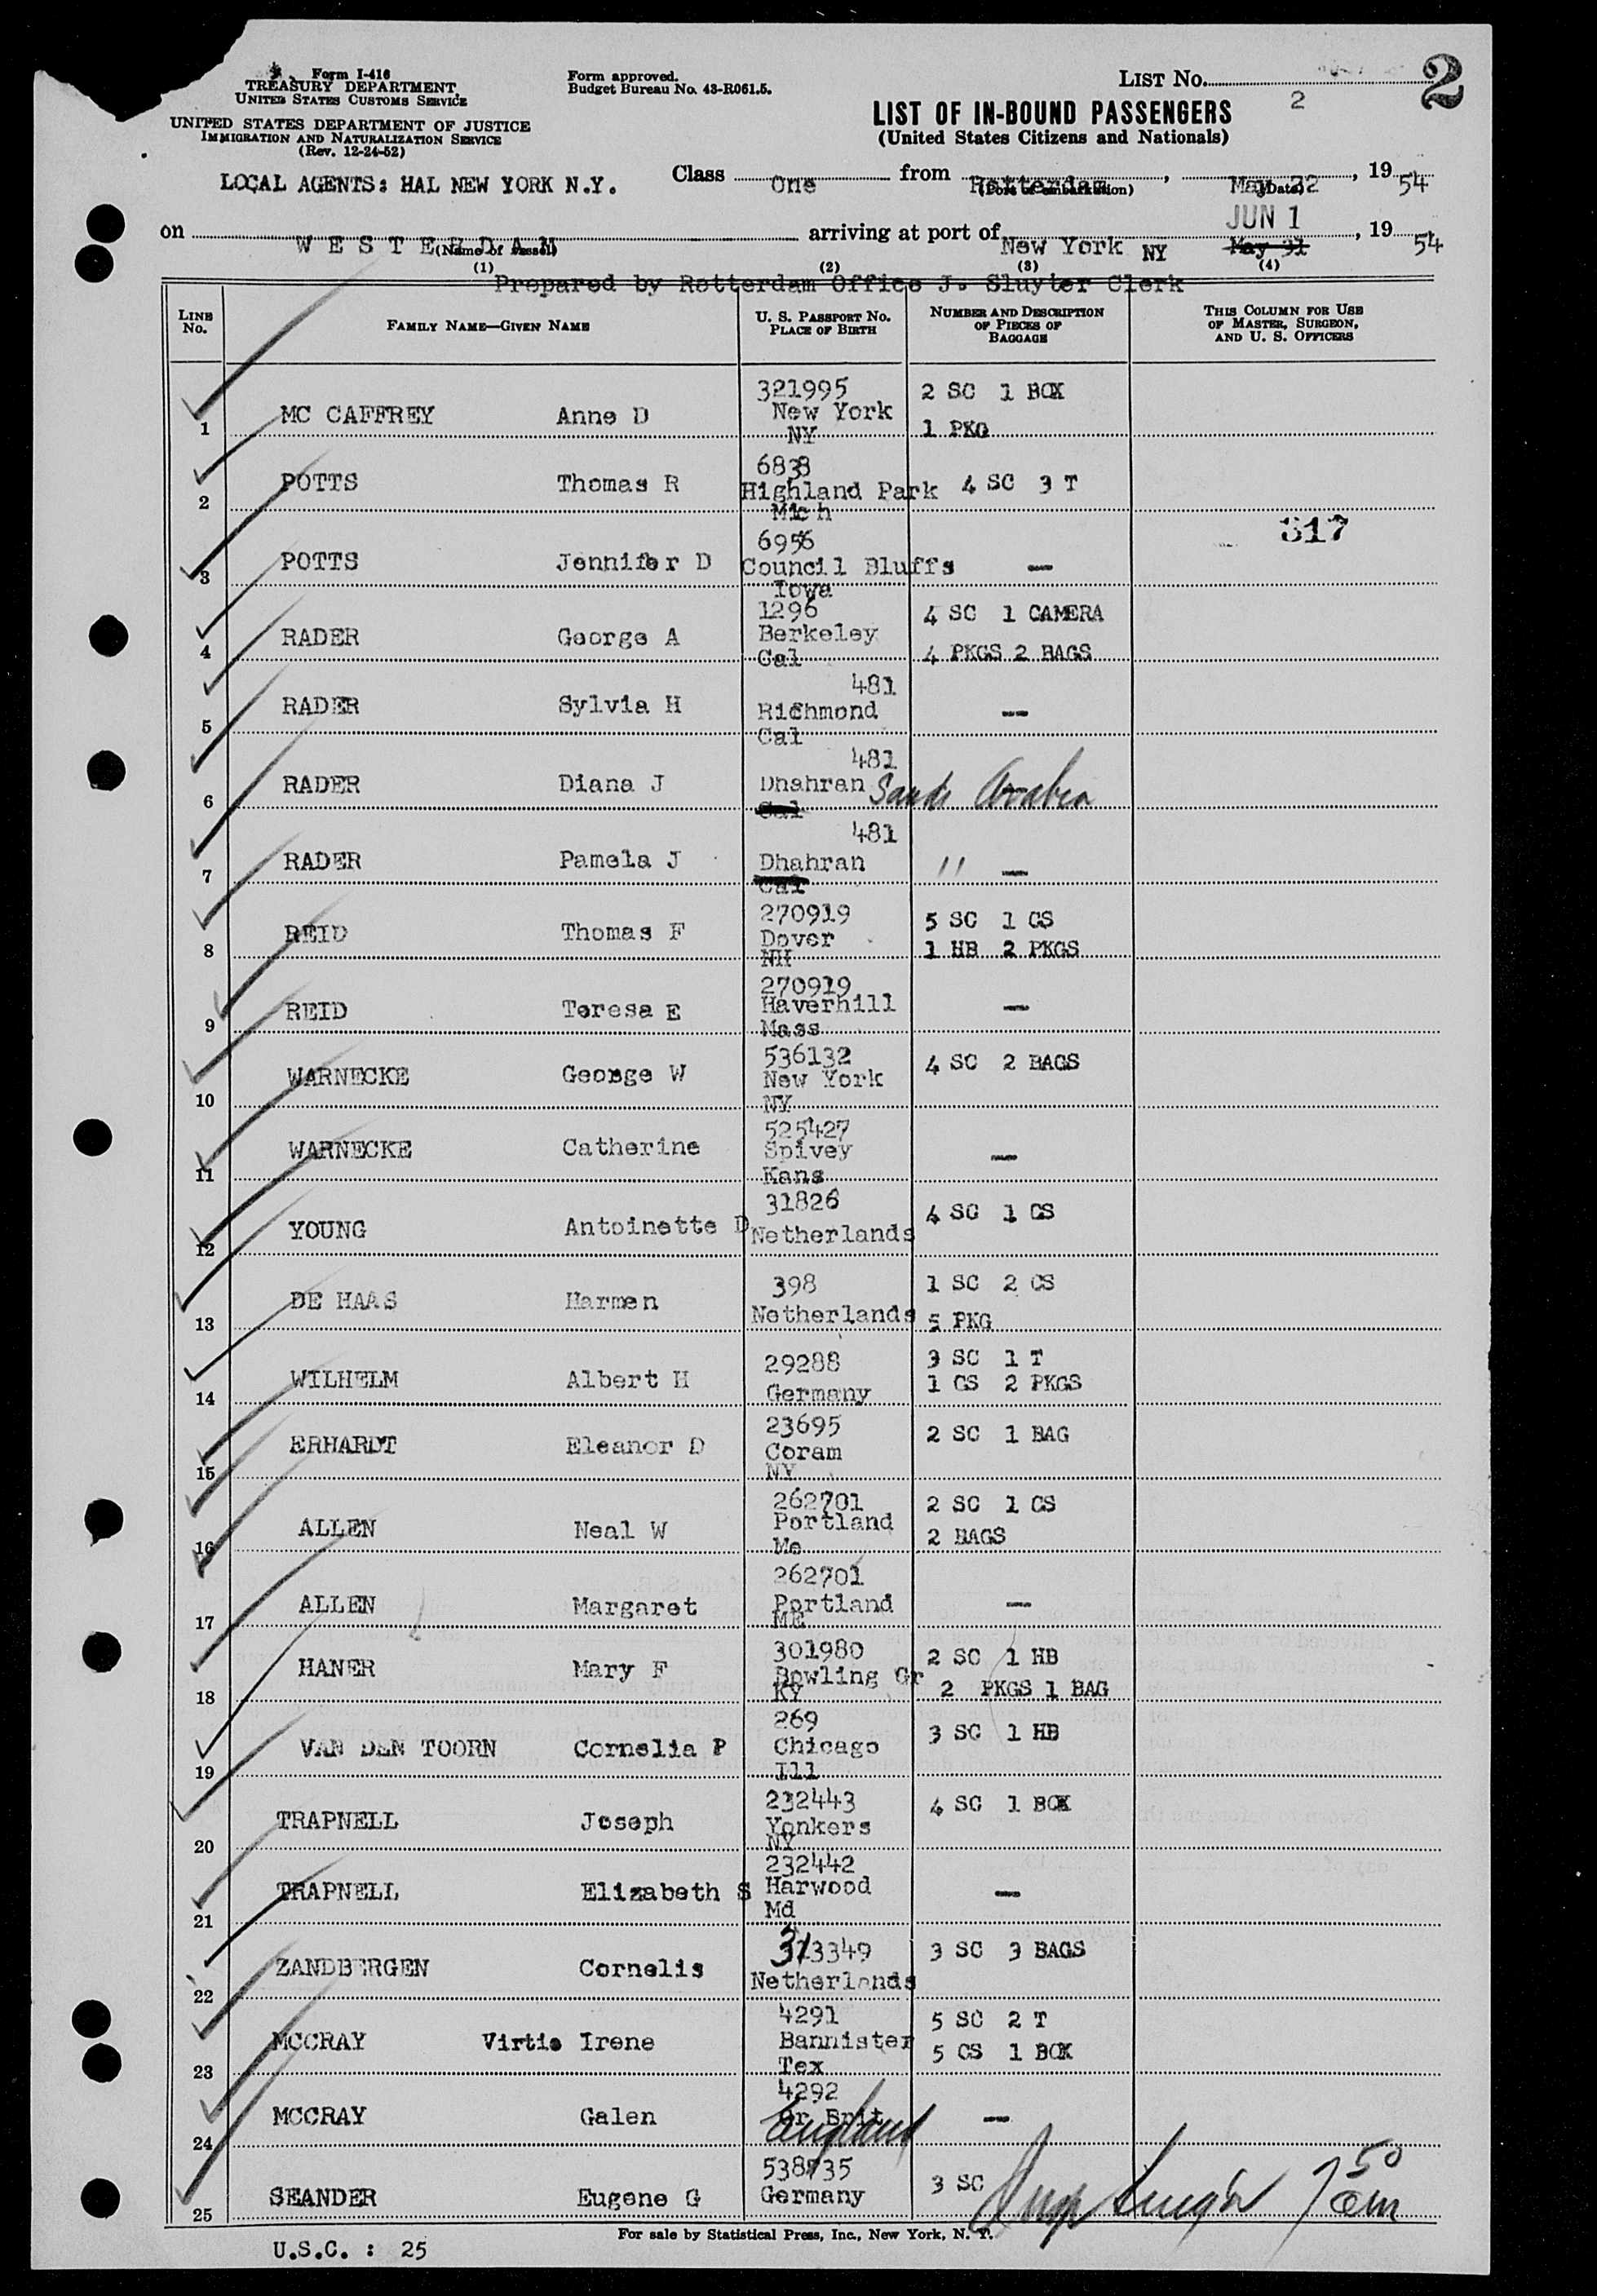 Form I-416
TREASURY DEPARTMENT
UNITED STATES CUSTOMS SERVICE
UNITED STATES DEPARTMENT OF JUSTICE
IMMIGRATION AND NATURALIZATION SERVICE
(Rev. 12-24-52)
Form approved.
Budget Bureau No. 43-R061.5.
LIST NO. 2
2
LIST OF IN-BOUND PASSENGERS
(United States Citizens and Nationals)
LOCAL AGENTS: HAL NEW YORK N.Y.
Class One from Rotterdam, May 22, 1954
(Port of embarkation) (Date)
on WESTERDAM arriving at port of New York NY JUN 1 May 31, 1954
(Name of vessel)
(1) (2) (3) (4)
Prepared by Rotterdam Office J. Sluyter Clerk
LINE No. FAMILY NAME—GIVEN NAME U. S. PASSPORT NO. PLACE OF BIRTH NUMBER AND DESCRIPTION OF PIECES OF BAGGAGE THIS COLUMN FOR USE OF MASTER, SURGEON, AND U. S. OFFICERS
1 MC CAFFREY Anne D 321995 New York NY 2 SC 1 BOX 1 PKG
2 POTTS Thomas R 6838 Highland Park Mich 4 SC 3 T
317
3 POTTS Jennifer D 6956 Council Bluffs Iowa —
4 RADER George A 1296 Berkeley Cal 4 SC 1 CAMERA 4 PKGS 2 BAGS
5 RADER Sylvia H 481 Richmond Cal —
6 RADER Diana J 481 Dhahran Cal Saudi Arabia
7 RADER Pamela J 481 Dhahran Cal " —
8 REID Thomas F 270919 Dover NH 5 SC 1 CS 1 HB 2 PKGS
9 REID Teresa E 270919 Haverhill Mass —
10 WARNECKE George W 536132 New York NY 4 SC 2 BAGS
11 WARNECKE Catherine 525427 Spivey Kans —
12 YOUNG Antoinette D 31826 Netherlands 4 SC 1 CS
13 DE HAAS Harmen 398 Netherlands 1 SC 2 CS 5 PKG
14 WILHELM Albert H 29288 Germany 3 SC 1 T 1 CS 2 PKGS
15 ERHARDT Eleanor D 23695 Coram NY 2 SC 1 BAG
16 ALLEN Neal W 262701 Portland Me 2 SC 1 CS 2 BAGS
17 ALLEN Margaret 262701 Portland ME —
18 HANER Mary F 301980 Bowling Gr KY 2 SC 1 HB 2 PKGS 1 BAG
19 VAN DEN TOORN Cornelia P 269 Chicago Ill 3 SC 1 HB
20 TRAPNELL Joseph 232443 Yonkers NY 4 SC 1 BOX
21 TRAPNELL Elizabeth S 232442 Harwood Md —
22 ZANDBERGEN Cornelis 313349 Netherlands 3 SC 3 BAGS
23 MCCRAY Virtie Irene 4291 Bannister Tex 5 SC 2 T 5 CS 1 BOX
24 MCCRAY Galen 4292 Gr Brit England —
25 SEANDER Eugene G 538735 Germany 3 SC
7 50 am
For sale by Statistical Press, Inc., New York, N. Y.
U.S.C. : 25